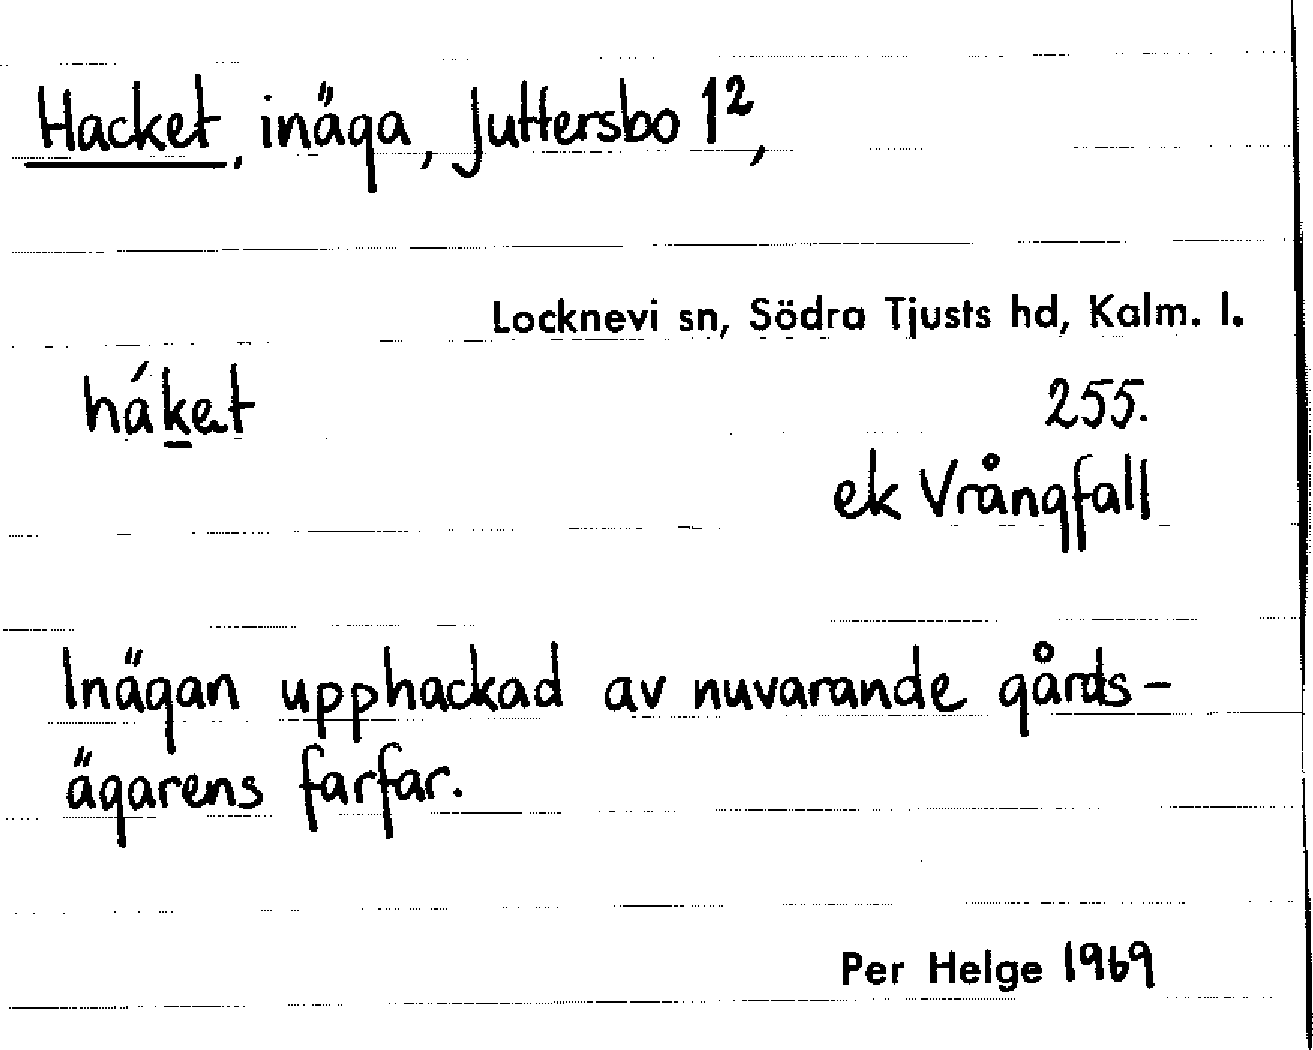 Hacket, inäga, Juttersbo 1²,
Locknevi sn, Södra Tjusts hd, Kalm. l.
hák̲et
255.
ek Vrångfall
Inägan upphackad av nuvarande gårds-
ägarens farfar.
Per Helge 1969